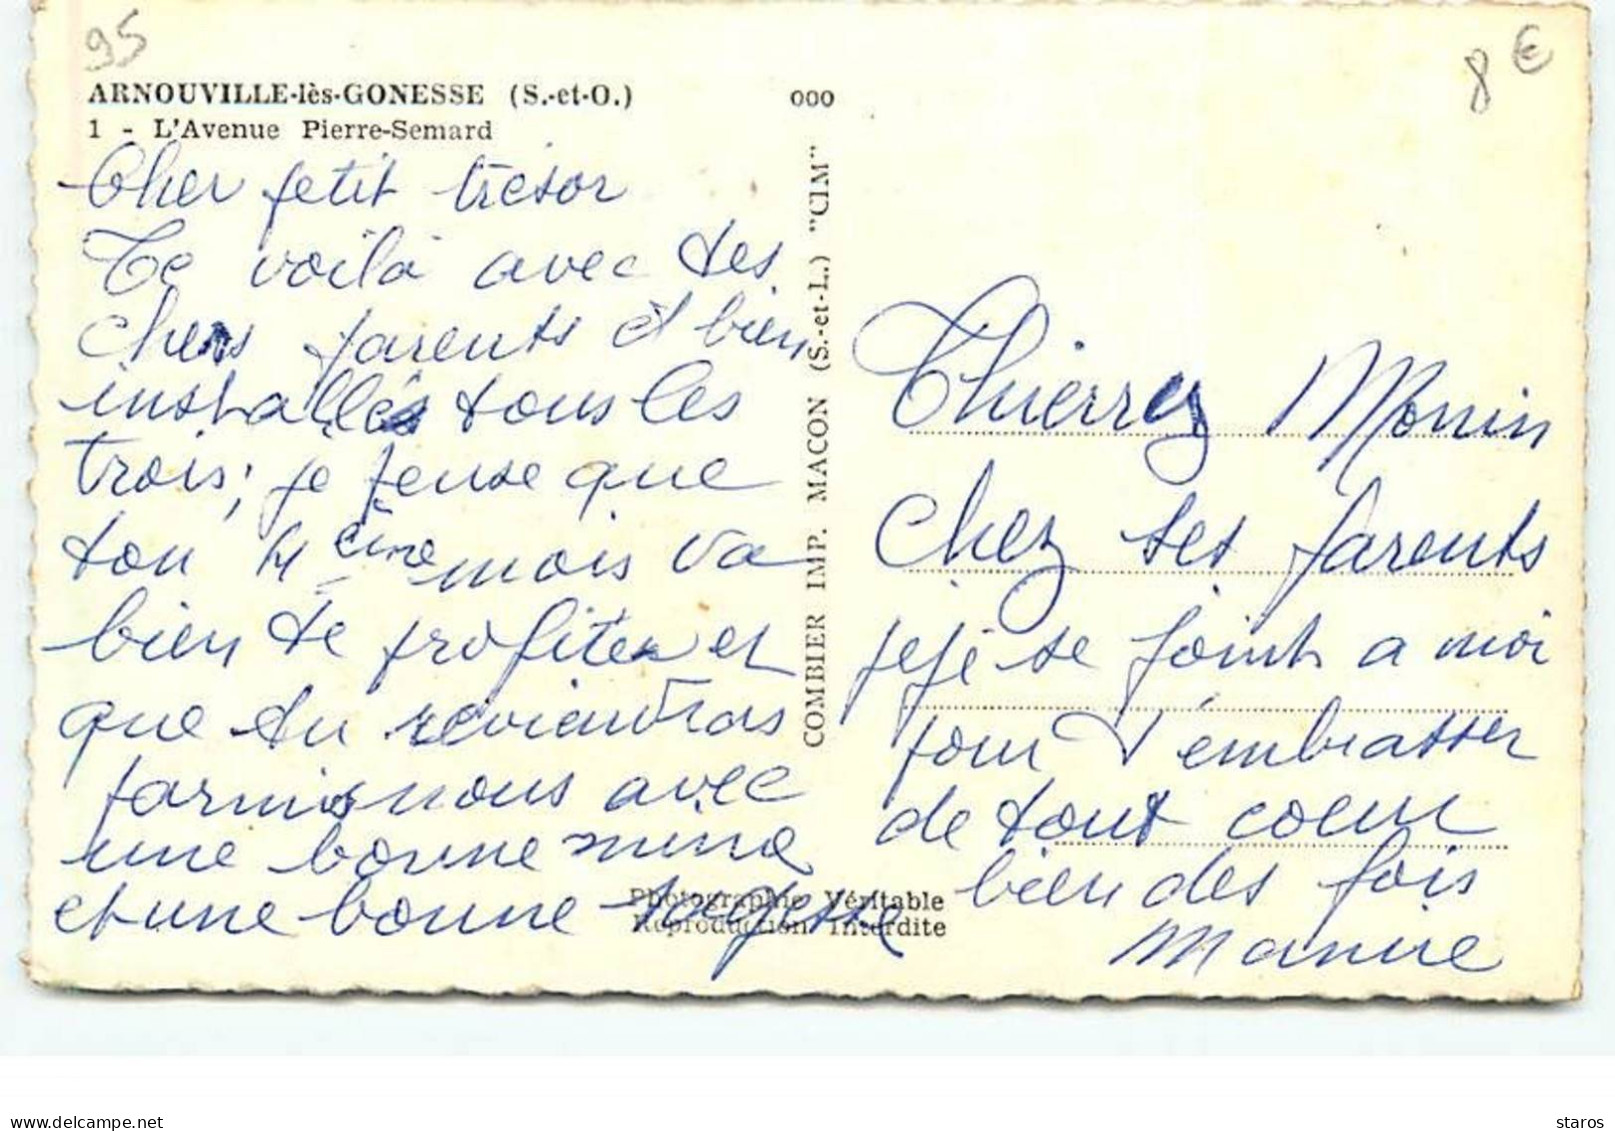 95
8 €
ARNOUVILLE-lès-GONESSE (S.-et-O.) 000
1 - L'Avenue Pierre-Semard
Cher petit trésor
Te voilà avec tes
chers parents et bien
installés tous les
trois; je pense que
ton 4ème mois va
bien te profiter et
que tu reviendras
parmis nous avec
une bonne mine
et une bonne sagesse
COMBIER IMP. MACON (S.-et-L.) "CIM"
Photographie Véritable
Reproduction Interdite
Thierry Monin
Chez ses parents
pépé se joint a moi
pour t'embrasser
de tout coeur
bien des fois
delcampe.net
staros